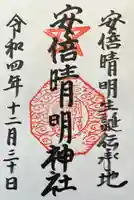 安倍晴明生誕伝承地
安倍晴明神社
令和四年十二月三十日